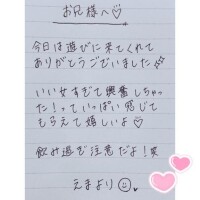 お兄様へ♡
今日は遊びに来てくれて
ありがとうございました
いい女すぎて興奮しちゃっ
た！っていっぱい感じて
もらえて嬉しいよ♡
飲み過ぎ注意だよ！笑
えまより☺